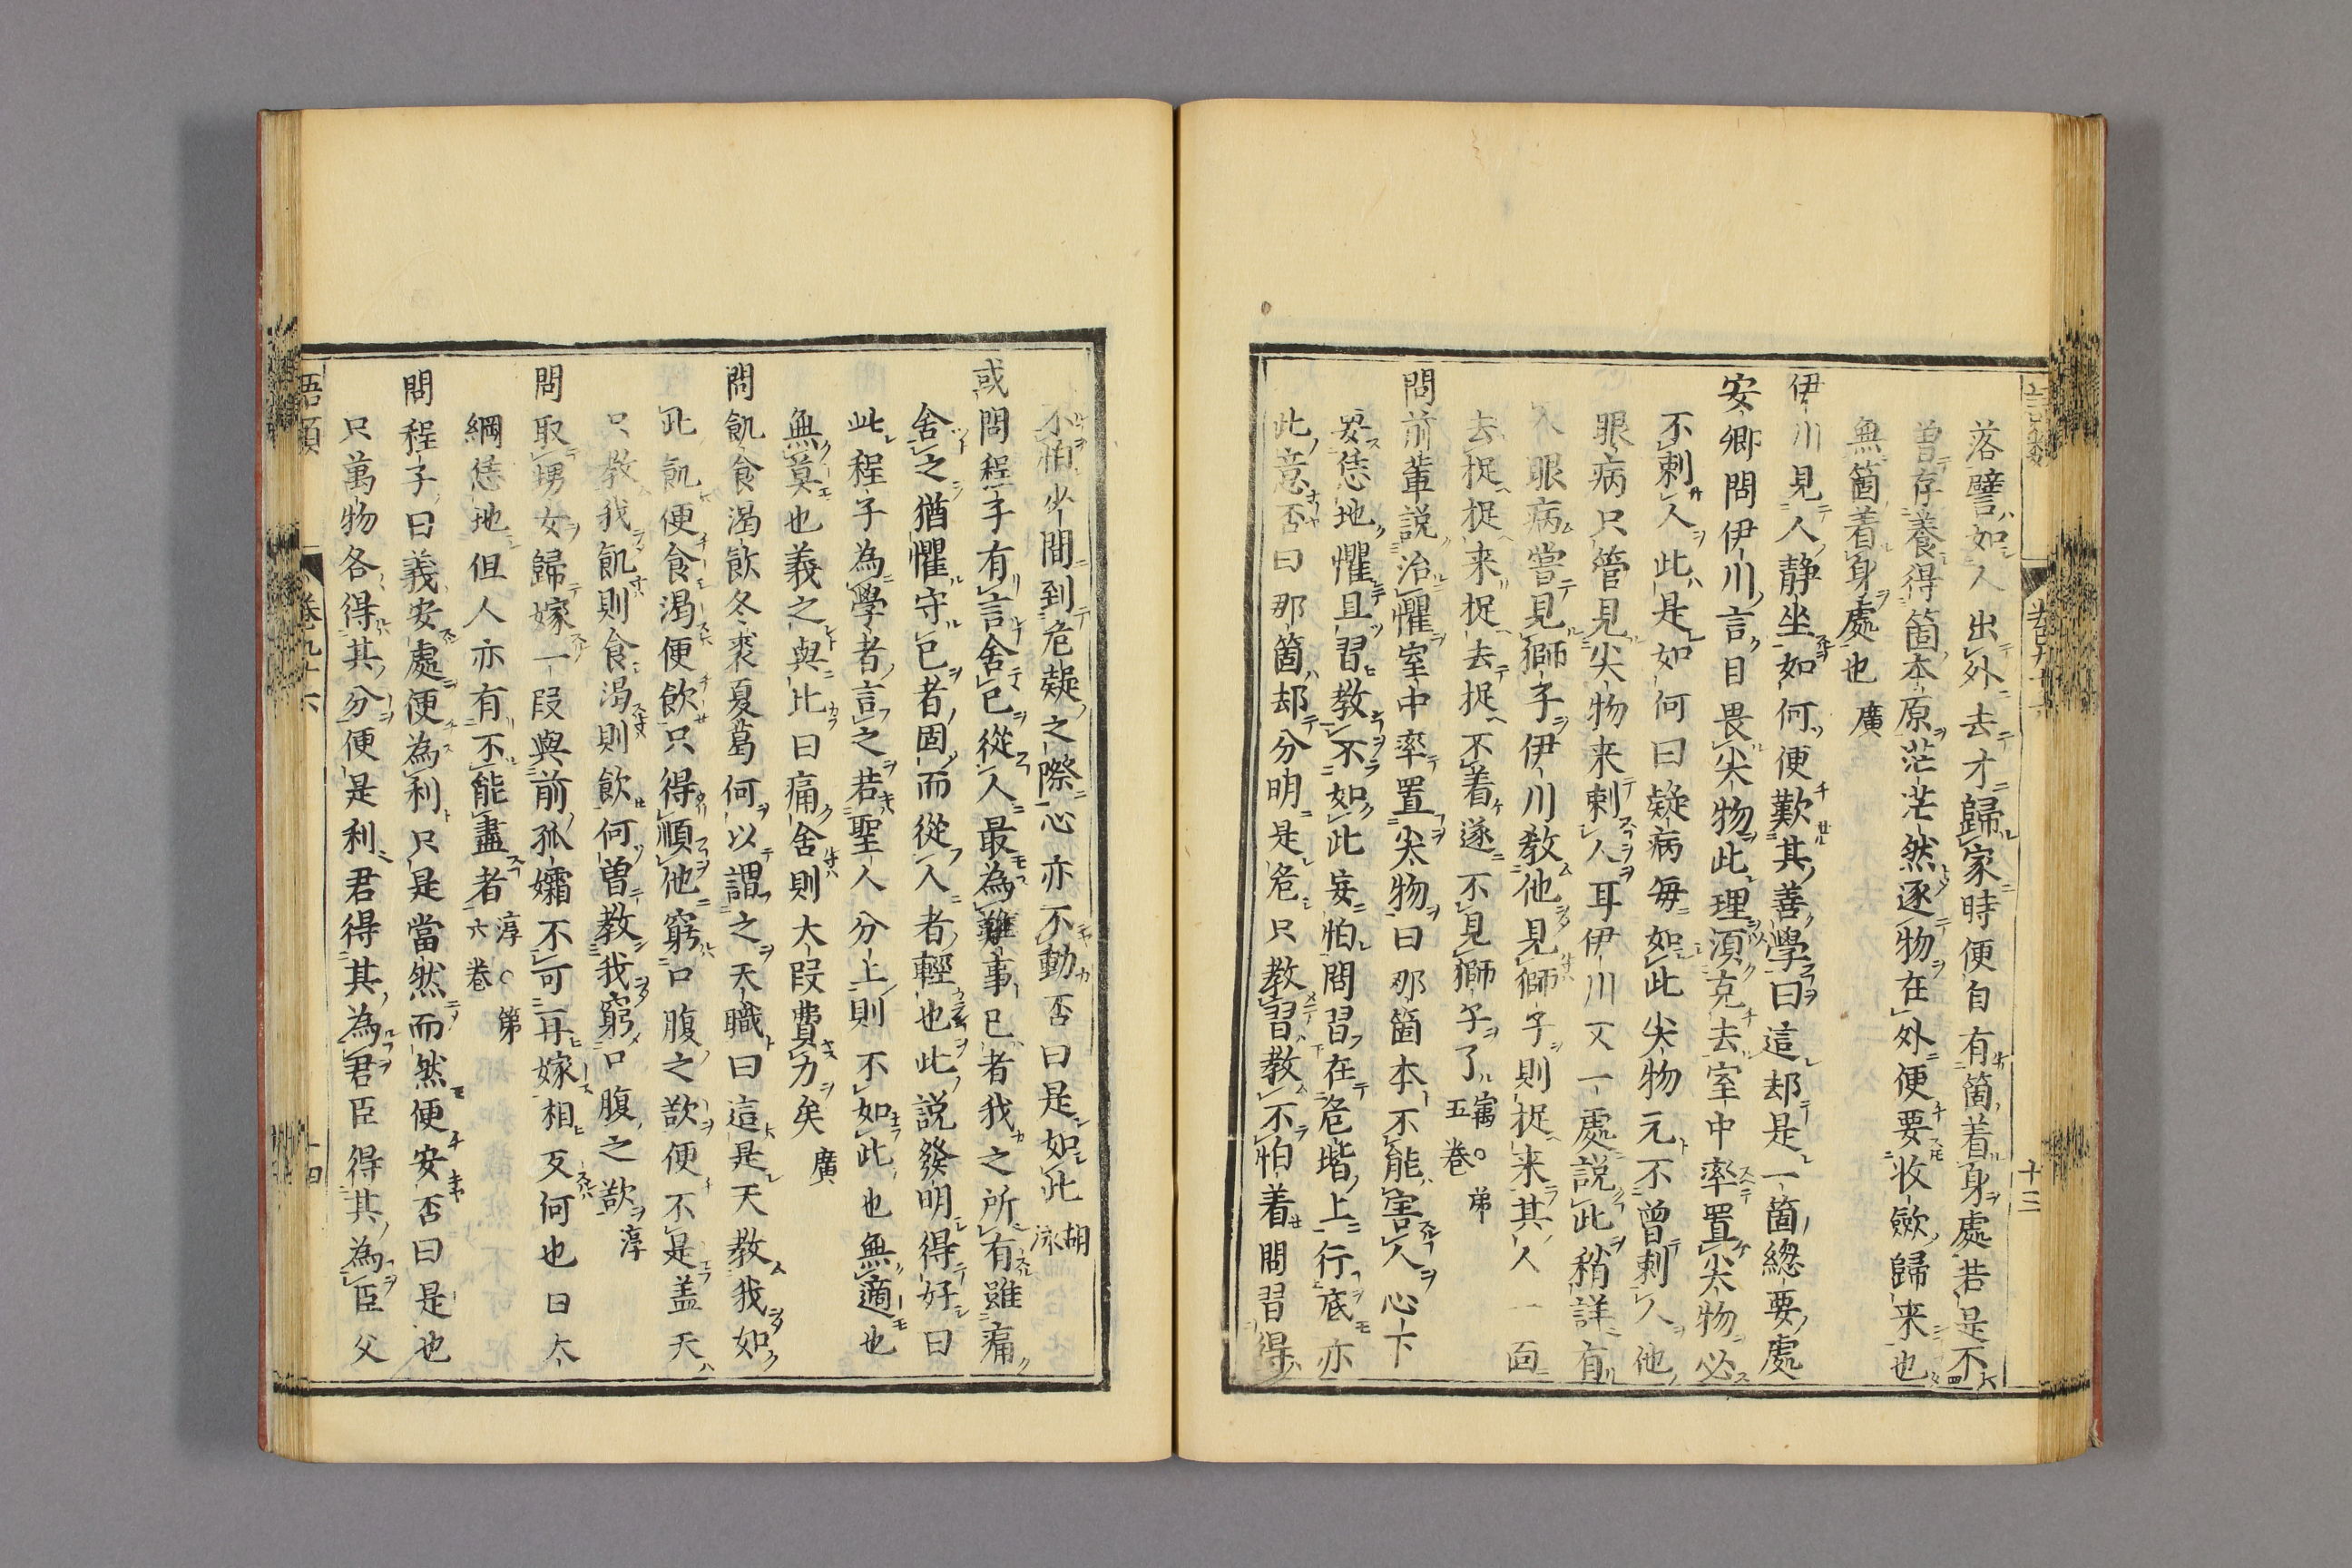 落譬如人出外去才歸家時便自有箇着身處若是不
曾存養得箇本原茫茫然逐物在外便要收歛歸来也
無箇着身處也 廣
伊川見人静坐如何便歎其善學曰這却是一箇緫要處
安卿問伊川言目畏尖物此理須克去室中率置尖物必
不刺人此是如何曰疑病每如此尖物元不曾刺人他
眼病只管見尖物来刺人耳伊川又一處説此稍詳有
人眼病嘗見獅子伊川教他見獅子則捉来其人一面
去捉捉来捉去捉不着遂不見獅子了 㝢○第五卷
問前軰説治懼室中率置尖物曰那箇本不能害人心下
要恁地懼且習教不如此妄怕問習在危堦上行底亦
此意否曰那箇却分明是危只教習教不怕着問習得
不怕少間到危疑之際心亦不動否曰是如此 胡泳
或問程子有言舍已從人最為難事已者我之所有雖痛
舍之猶懼守已者固而從人者輕也此説發明得好曰
此程子為學者言之若聖人分上則不如此也無適也
無莫也義之與比曰痛舍則大段費力矣 廣
問飢食渴飲冬裘夏葛何以謂之天職曰這是天教我如
此飢便食渴便飲只得順他窮口腹之欲便不是盖天
只教我飢則食渴則飲何曽教我窮口腹之欲 淳
問取甥女歸嫁一段與前孤孀不可再嫁相反何也曰大
綱恁地但人亦有不能盡者 淳○第六卷
問程子曰義安處便為利只是當然而然便安否曰是也
只萬物各得其分便是利君得其為君臣得其為臣父
語類
卷九十六
十四
十三